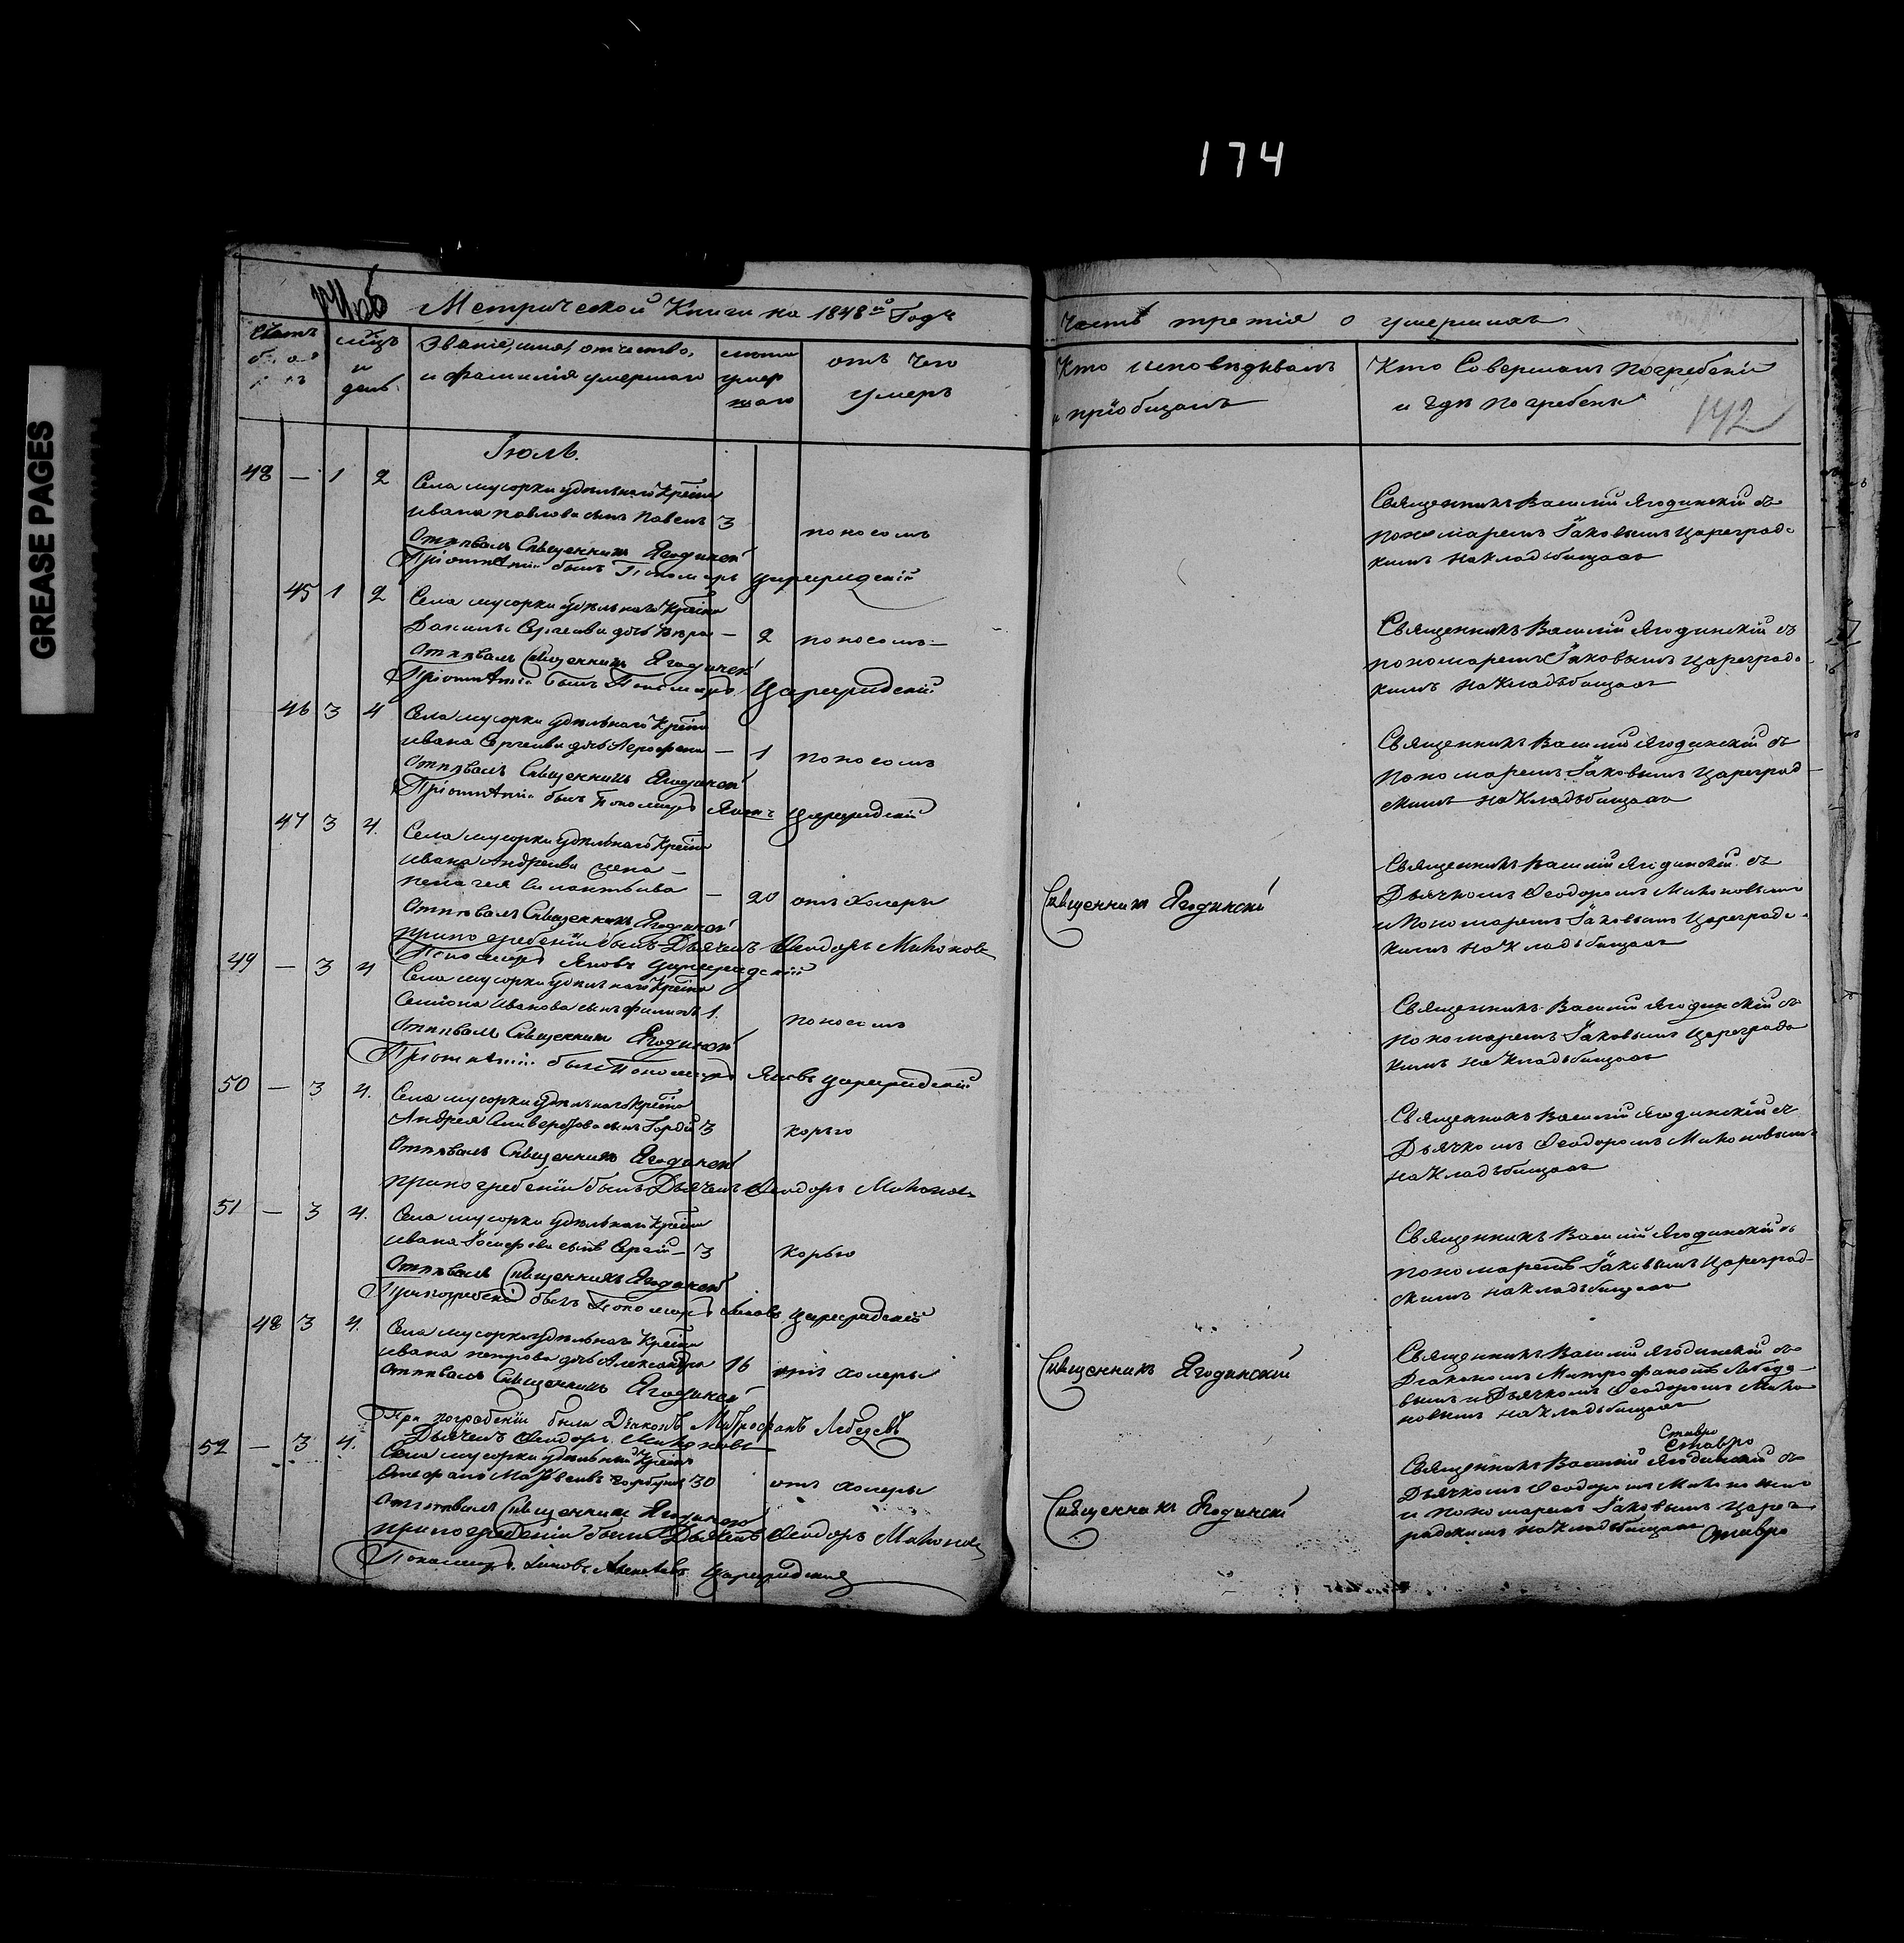 174
GREASE PAGES
Метрической Книги на 1848й Годъ
Часть третія о умершихъ
мѣсцъ
и
день
Званіе, имя, отчество,
и фамилія умершаго
лѣта
умер
шаго
отъ чего
умеръ
Кто исповѣдывалъ
и пріобщалъ
Кто Совершалъ погребеніе
и гдѣ погребены
142
Іюль.
48 — 1 2
Села мусорки удѣльнаго Крестна
ивана павлова сынъ павелъ 3
поносомъ
Отпѣвалъ Священникъ Ягодинскій
былъ Пономарь Цареградскій
Священникъ Василій Ягодинскій съ
пономаремъ Іаковымъ Цареградс
кимъ на кладбищахъ
45 1 2
Села мусорки удѣльнаго Крестна
Сергеева дочь — 2 поносомъ
Отпѣвалъ Священникъ Ягодинскій
былъ Пономарь Цареградскій
Священникъ Василій Ягодинскій съ
пономаремъ Іаковымъ Цареградс
кимъ на кладбищахъ
46 3 4
Села мусорки удѣльнаго Крестна
ивана Сергеева дочь Агрофена — 1 поносомъ
Отпѣвалъ Священникъ Ягодинскій
былъ Пономарь Яковъ Цареградскій
Священникъ Василій Ягодинскій съ
пономаремъ Іаковымъ Цареград
скимъ на кладбищахъ
47 3 4.
Села мусорки удѣльнаго Крестна
ивана Андреева жена —
пелагея — 20 отъ холеры
Отпѣвалъ Священникъ Ягодинскій
при погребеніи былъ Дьячекъ Феодоръ Михонов
Пономарь Яковъ Цареградскій
Священникъ Ягодинскій
Священникъ Василій Ягодинскій съ
Дьячкомъ Феодоромъ Михоновымъ
и Пономаремъ Іаковымъ Цареградс
кимъ на кладбищахъ
49 — 3 4
Села мусорки удѣльнаго Крестна
Семіона Иванова сынъ филипъ 1.
поносомъ
Отпѣвалъ Священникъ Ягодинскій
былъ Пономарь Яковъ Цареградскій
Священникъ Василій Ягодинскій съ
пономаремъ Іаковымъ Цареградс
кимъ на кладбищахъ
50 — 3 4.
Села мусорки удѣльнаго Крестна
Андрея сынъ Гордій 3
корью
Отпѣвалъ Священникъ Ягодинскій
при погребеніи былъ Дьячекъ Феодоръ Михонов
Священникъ Василій Ягодинскій съ
Дьячкомъ Феодоромъ Михоновымъ
на кладбищахъ
51 — 3 4.
Села мусорки удѣльнаго Крестна
ивана сынъ Сергей — 3
корью
Отпѣвалъ Священникъ Ягодинскій
При погребеніи былъ Пономарь Яковъ Цареградскій
Священникъ Василій Ягодинскій съ
пономаремъ Іаковымъ Цареград
скимъ на кладбищахъ
48 3 4.
Села мусорки удѣльнаго Крестна
ивана петрова дочь Александра 16 отъ холеры
Отпѣвалъ Священникъ Ягодинскій
При погребеніи были Діаконъ Митрофанъ Лебедевъ
Дьячекъ Феодоръ Михоновъ
Священникъ Ягодинскій
Священникъ Василій Ягодинскій съ
Діакономъ Митрофаномъ Лебеде
вымъ и Дьячкомъ Феодоромъ Михо
новымъ на кладбищахъ
52 — 3 4.
Села мусорки удѣльный Крестнъ
30 отъ холеры
Отпѣвалъ Священникъ Ягодинскій
при погребеніи были Дьячекъ Феодоръ Михонов
Пономарь Яковъ Цареградскій
Священникъ Ягодинскій
Священникъ Василій Ягодинскій съ
Дьячкомъ Феодоромъ
и пономаремъ Іаковымъ Царег
радскимъ на кладбищахъ